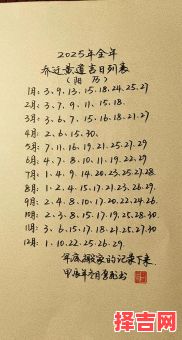 2025年全年
乔迁黄道吉日列表
(阳历)
1月: 3、9、13、15、18、24、25、27
2月: 3、7、9、11、15、18.
3月: 3、6、7、15、16、18、21、27
4月: 2、6、15、30、
5月: 7、11、16、19、21、25、27、29
6月: 4、7、8、10、11、19、22、
7月: 1、4、9、14、20、25、27、28
8月: 1、2、4、15、17、21、23、29、
9月: 2、4、8、10、17、20、22、24、26.
10月: 2、3、8、15、17、19、25、28、30.
11月: 3、6、15、17、18、21、25、27、30
12月: 1、10、22、25、26、29.
年底搬家的记录下来.
甲辰年
择吉网